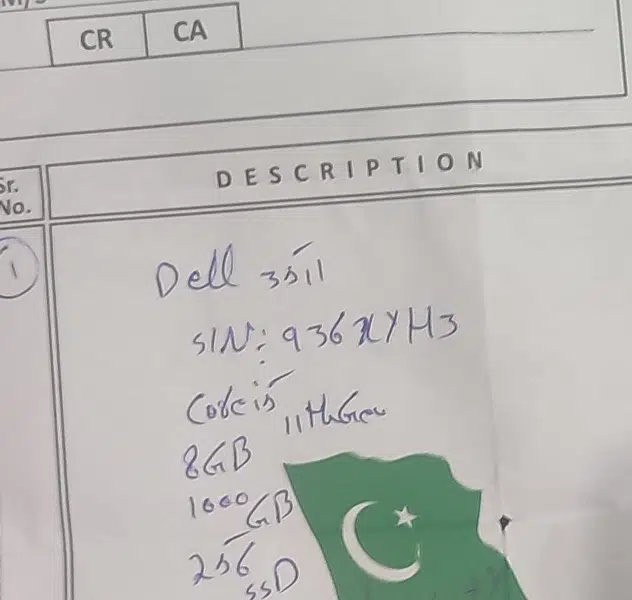 CR CA
Sr. No. DESCRIPTION
1 Dell 3511
S/N: 936XYH3
Core i5 11th Gen
8GB
1000 GB
256 SSD